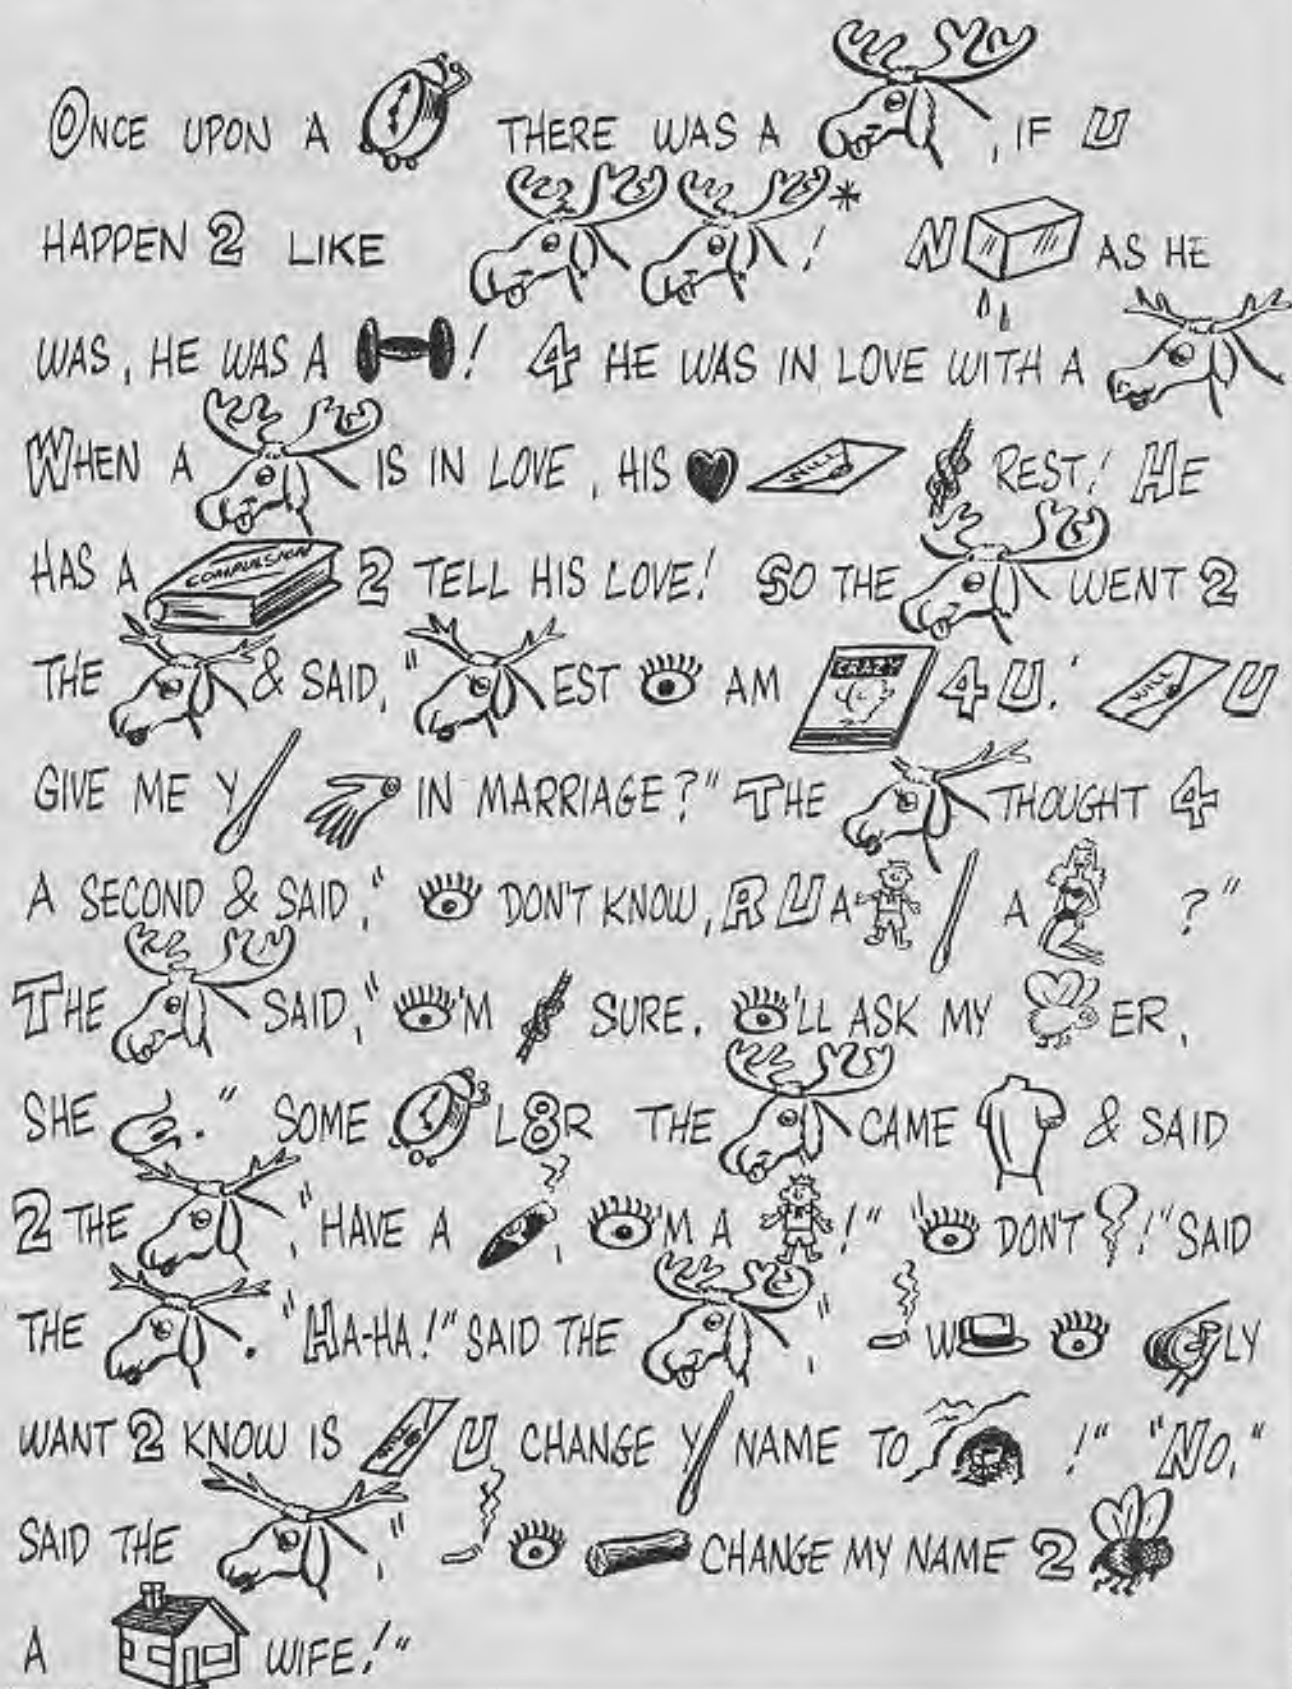 ONCE UPON A THERE WAS A , IF U
HAPPEN 2 LIKE !* N AS HE
WAS, HE WAS A ! 4 HE WAS IN LOVE WITH A
WHEN A IS IN LOVE, HIS WILL REST! HE
HAS A COMPULSION 2 TELL HIS LOVE! SO THE WENT 2
THE & SAID, " EST AM CRAZY 4 U. WILL U
GIVE ME Y IN MARRIAGE?" THE THOUGHT 4
A SECOND & SAID, " DON'T KNOW, R U A A ?"
THE SAID, " 'M SURE. 'LL ASK MY ER,
SHE ." SOME L8R THE CAME & SAID
2 THE , "HAVE A , 'M A !" " DON'T !" SAID
THE . "HA-HA!" SAID THE , " W LY
WANT 2 KNOW IS U CHANGE Y NAME TO !" "NO,"
SAID THE , " CHANGE MY NAME 2
A WIFE!"